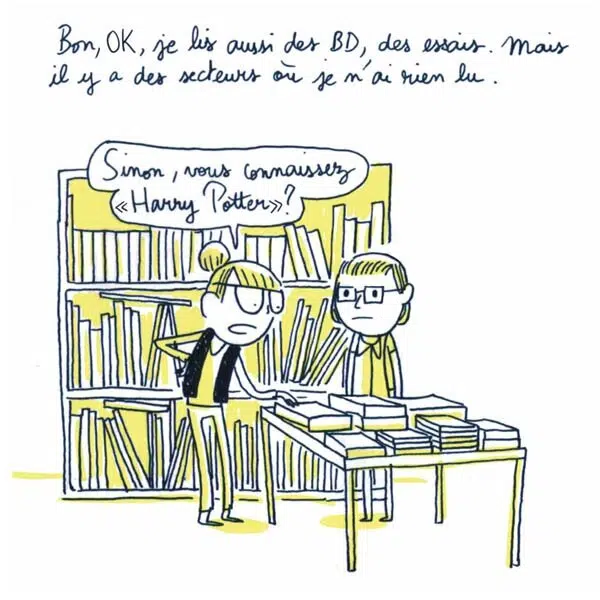 Bon, OK, je lis aussi des BD, des essais. Mais
il y a des secteurs où je n'ai rien lu.
Sinon, vous connaissez
«Harry Potter»?